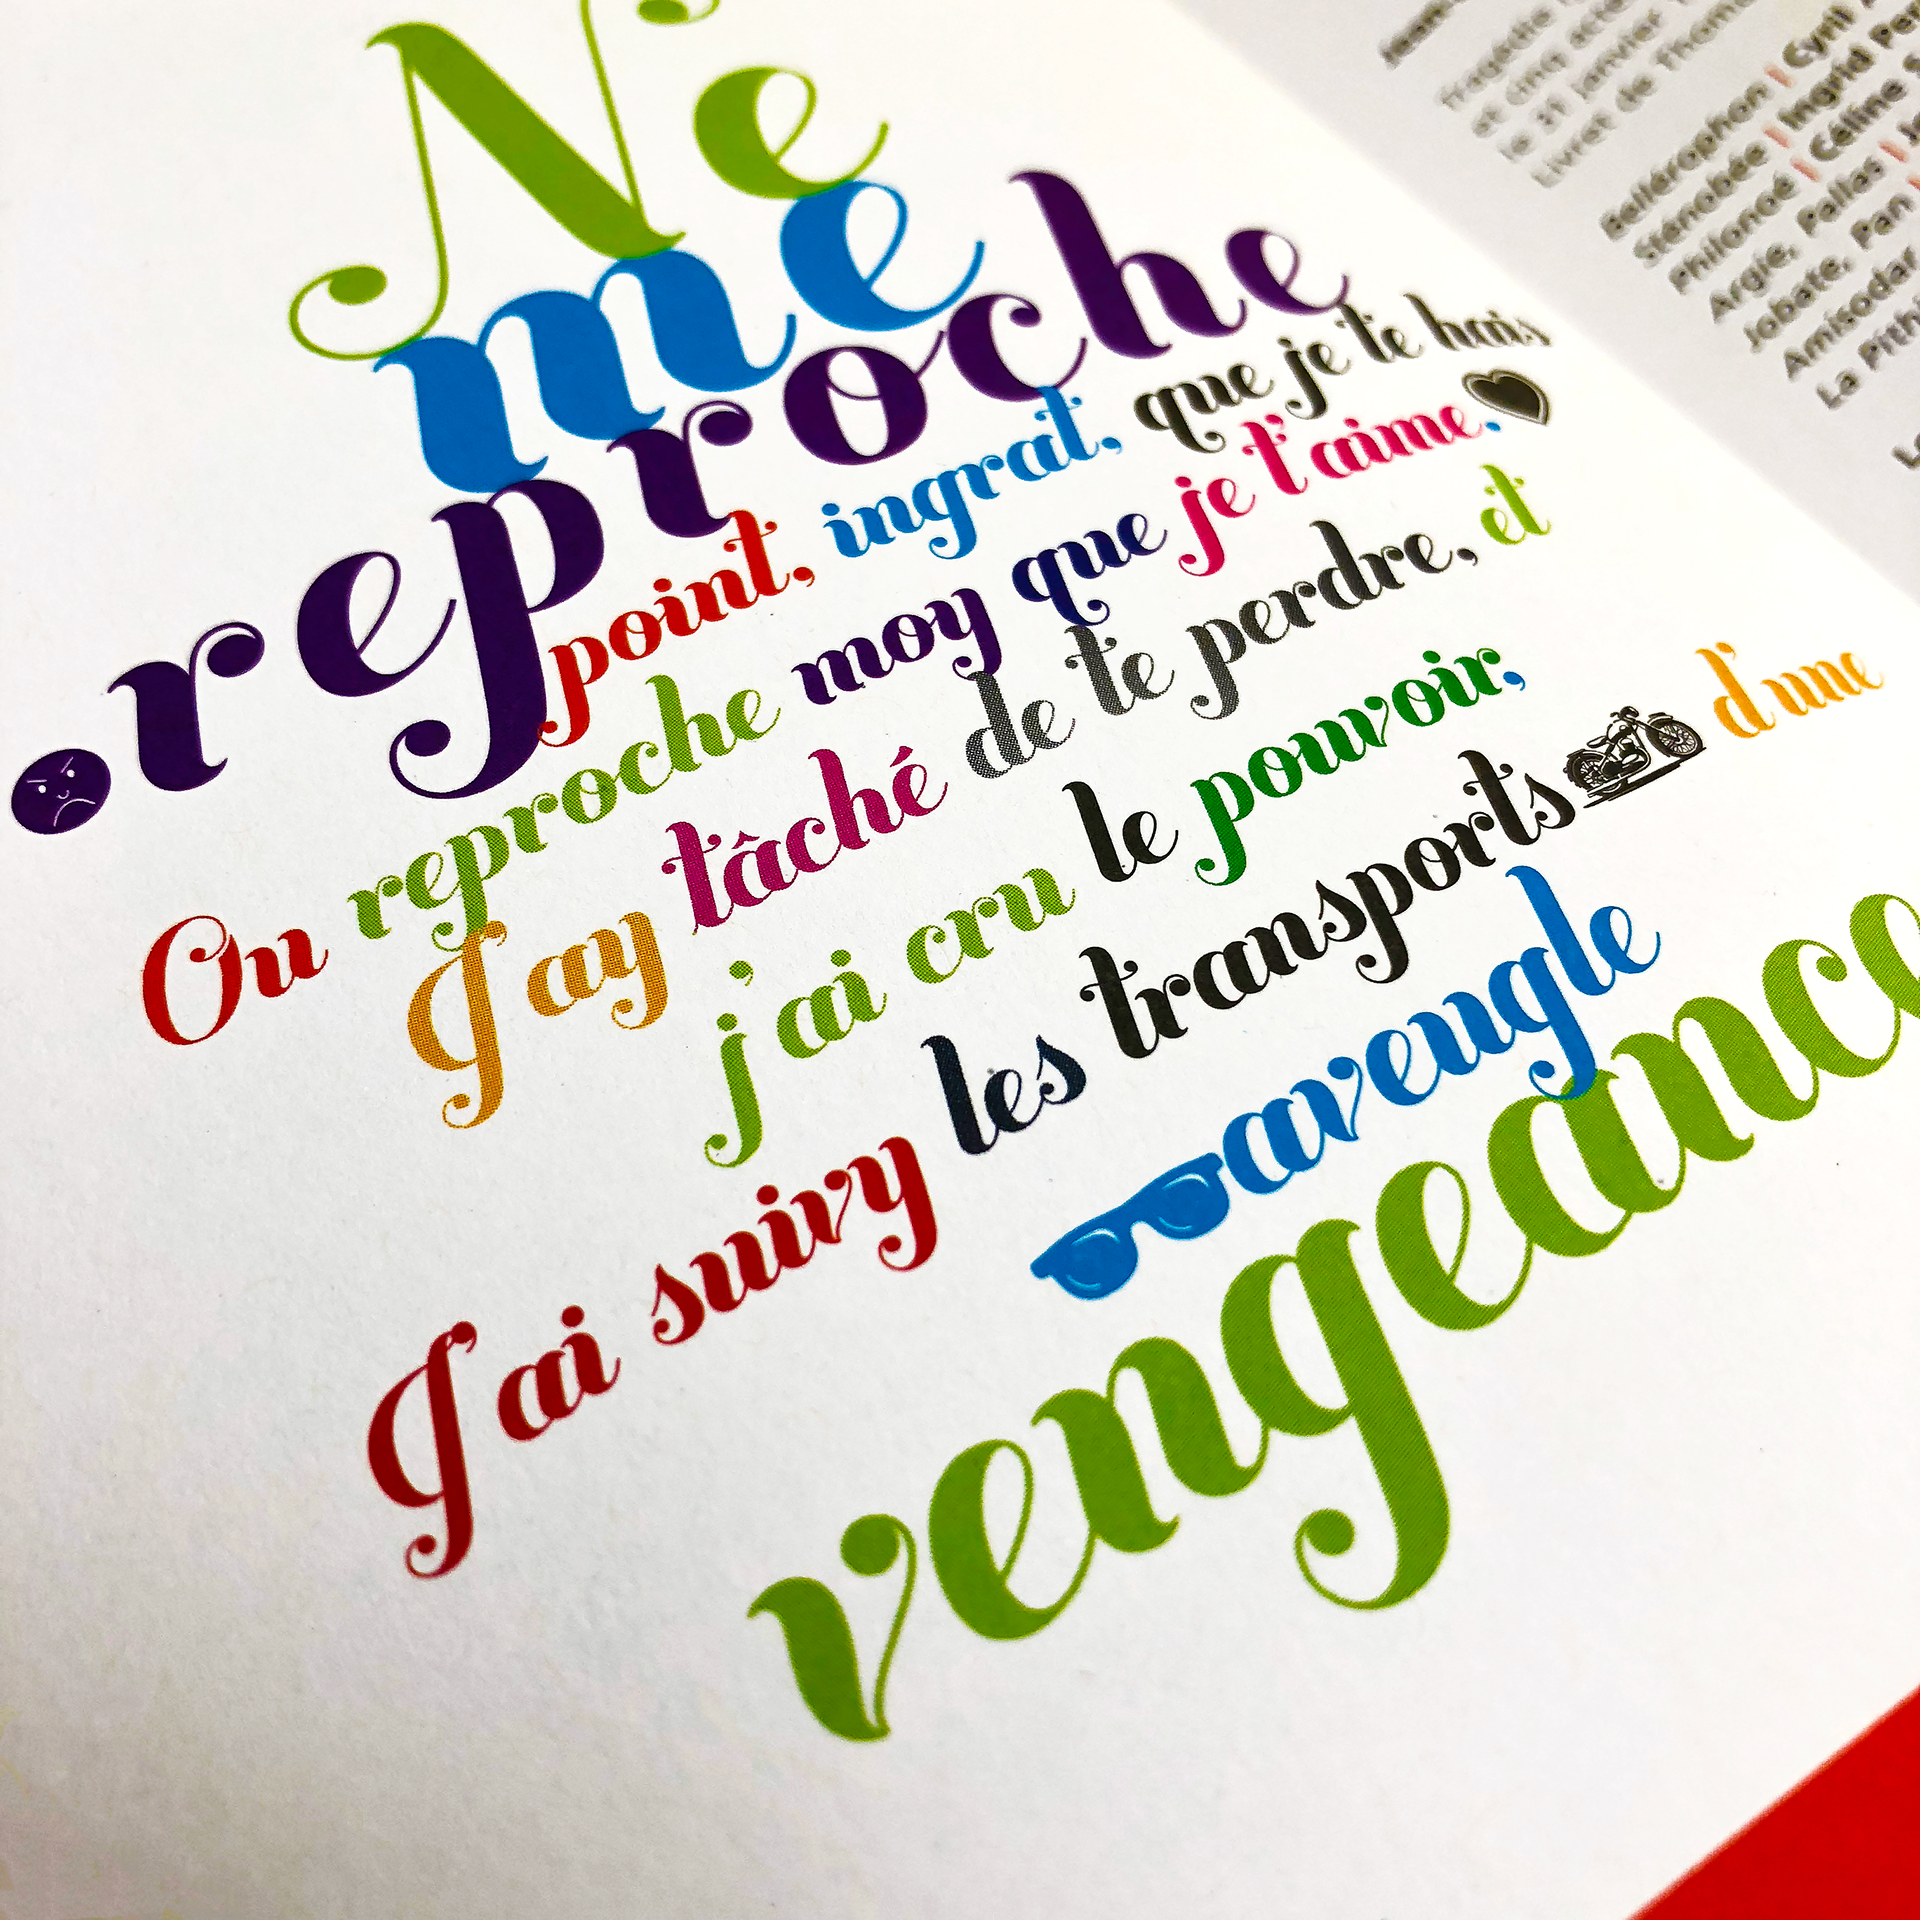 Ne
me
reproche
point, ingrat, que je te hais
Ou reproche moy que je t'aime.
J'ay tâché de te perdre, et
j'ai cru le pouvoir,
J'ai suivy les transports d'une
aveugle
vengeance
Jean-
Tragédie
et cinq acte
le 31 janvier
Livret de Thoma
Bellérophon | Cyril A
Sténobée | Ingrid Per
Philonoé | Céline S
Argie, Pallas | Je
Jobate, Pan |
Amisodar
La Pithi